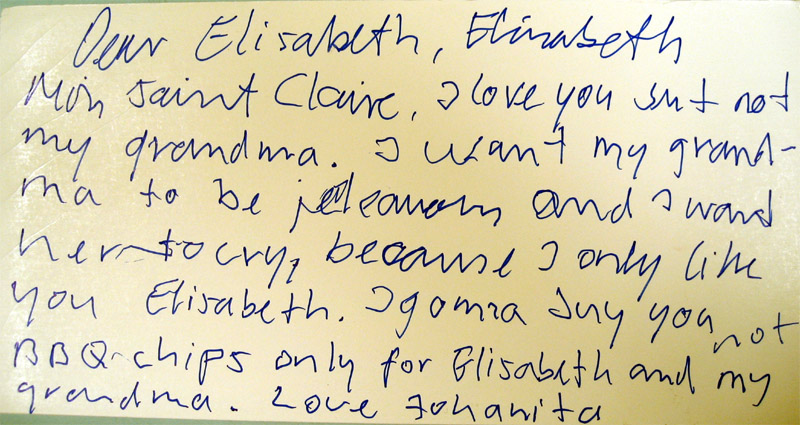 Dear Elisabeth, Elisabeth
Mon Saint Claire, I love you but not
my grandma. I want my grand-
ma to be jeleauous and I want
her to cry, because I only like
you Elisabeth. I gonna buy you
not
BBQ-chips only for Elisabeth and my
grandma. Love Johanita